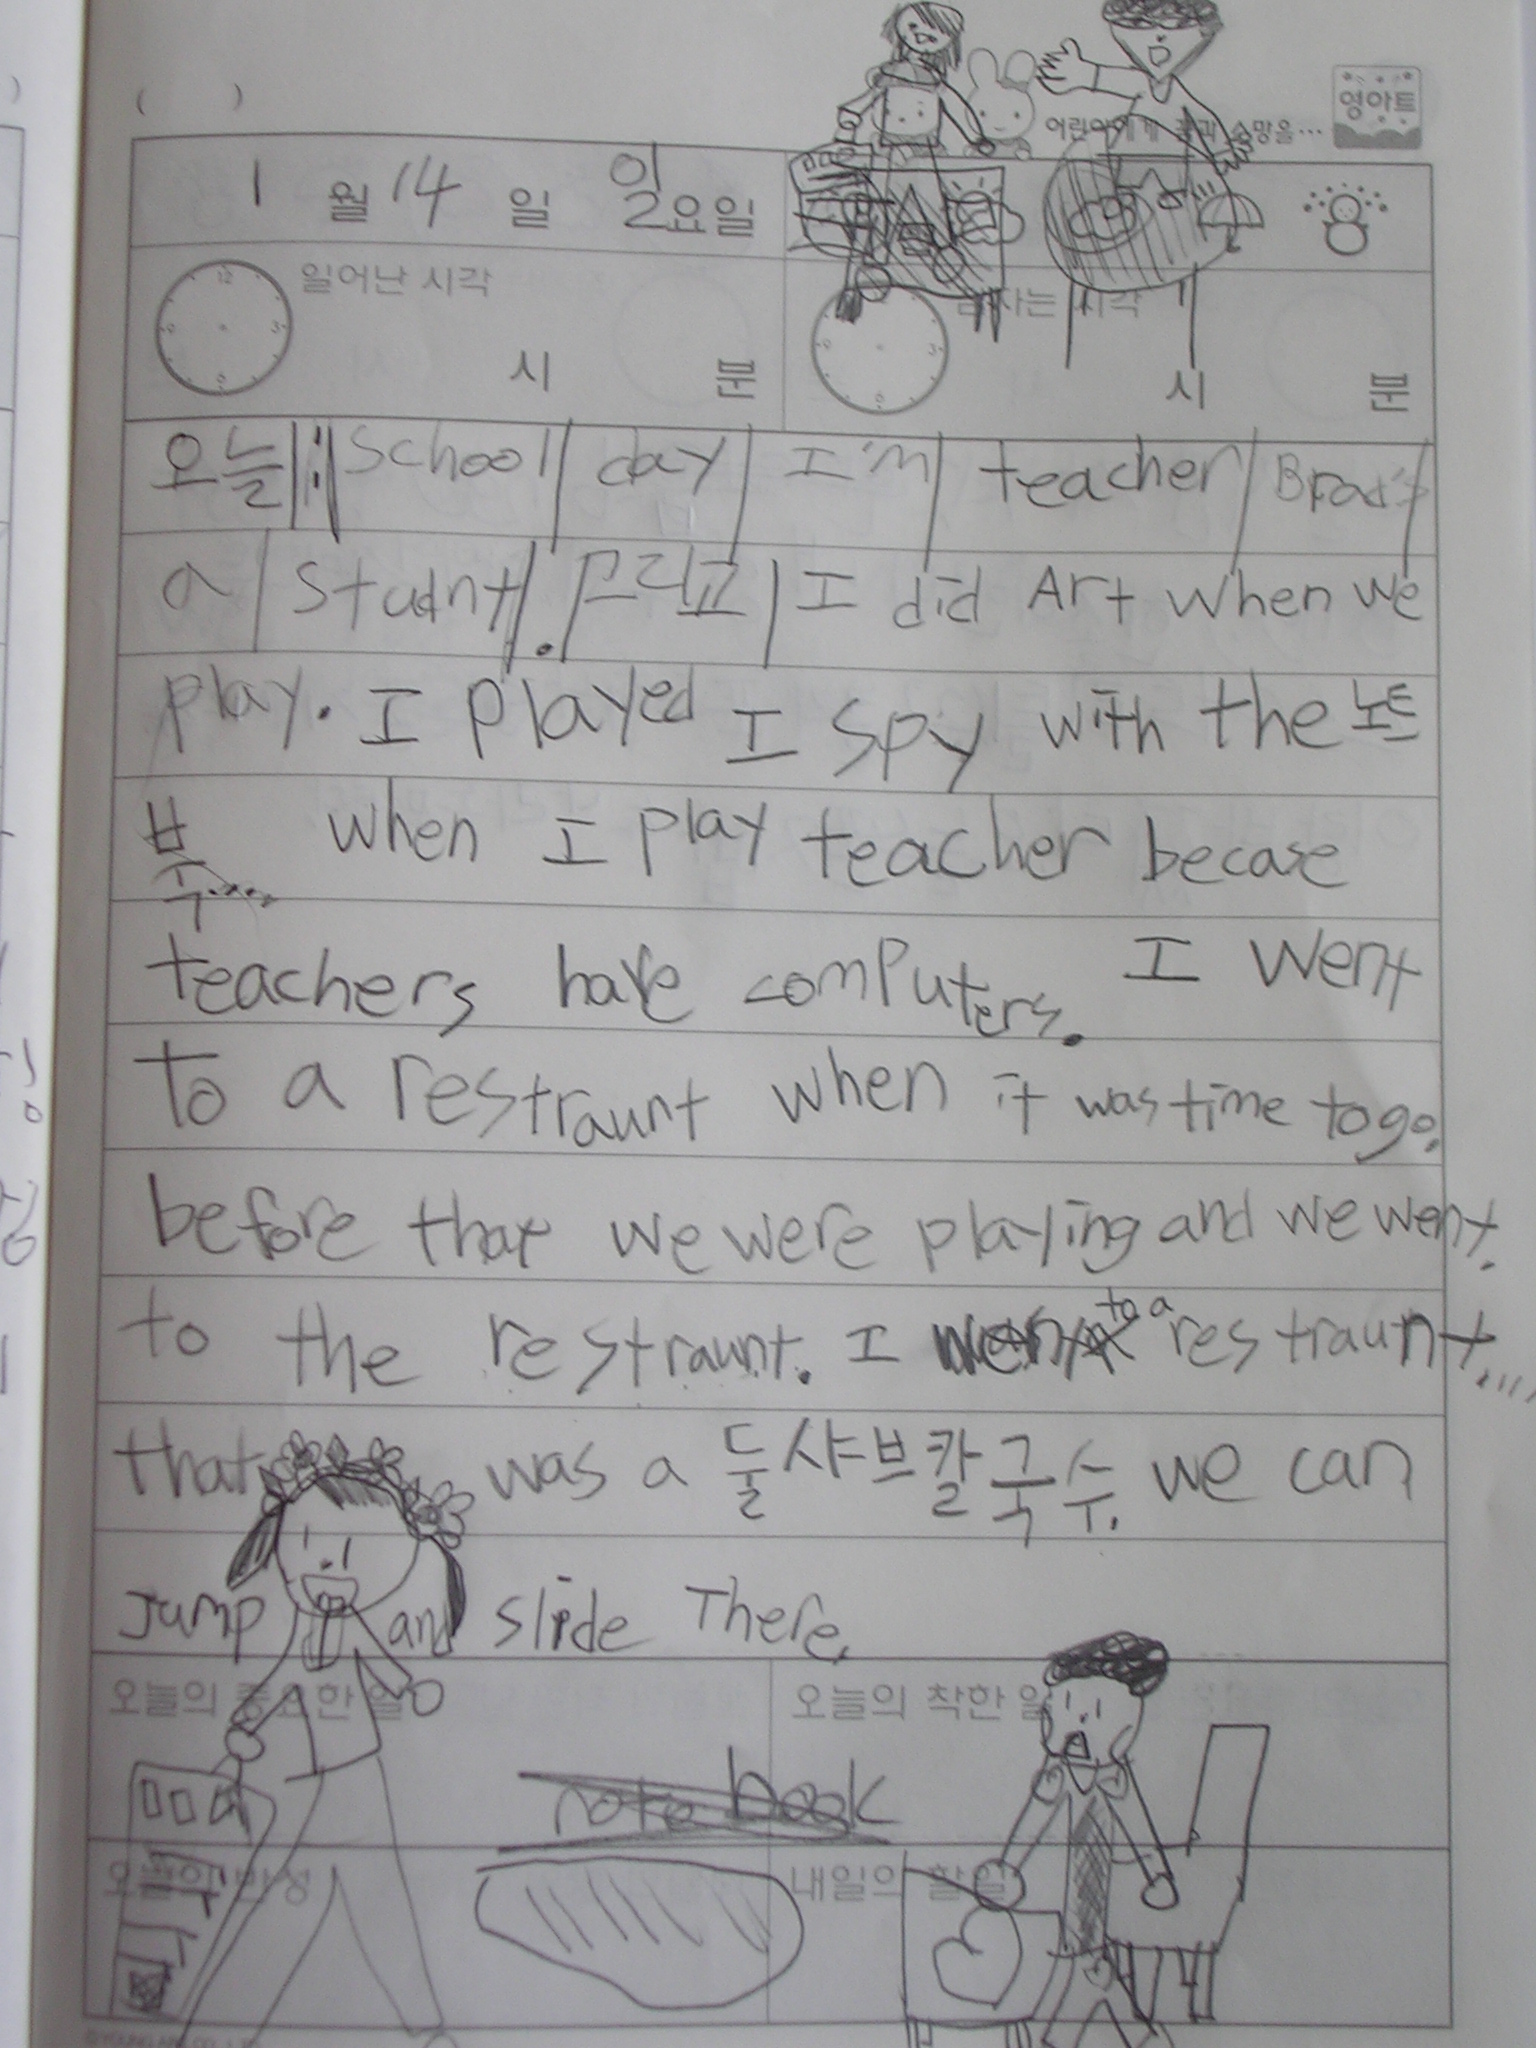 ( )
영아트
어린이에게 꿈과 소망을...
1 월 14 일 일요일
일어난 시각
시 분
잠자는 시각
시 분
오늘 : school day I'm teacher Brad's
a Studnt. 그리고 I did Art when we
play. I played I spy with the 노트
북.... when I play teacher becase
teachers have computers. I went
to a restraunt when it was time to go.
before that we were playing and we went.
to the restraunt. I went to a restraunt....
that was a 둘샤브칼국수. we can
Jump and slide There.
오늘의 중요한 일
오늘의 착한 일
note book
오늘의 반성
내일의 할 일